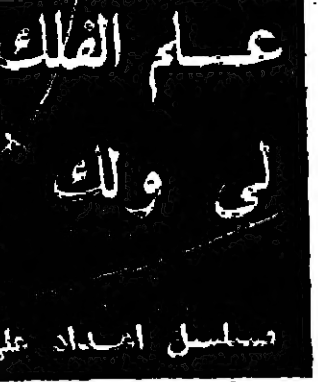 علم الفلك
لي ولك
مسلسل اعداد